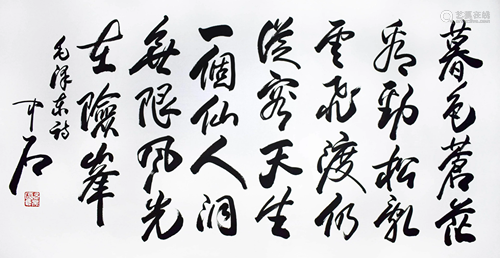 暮色蒼茫
看勁松亂
雲飛渡仍
從容天生
一個仙人洞
無限風光
在險峰
毛澤東詩
中石